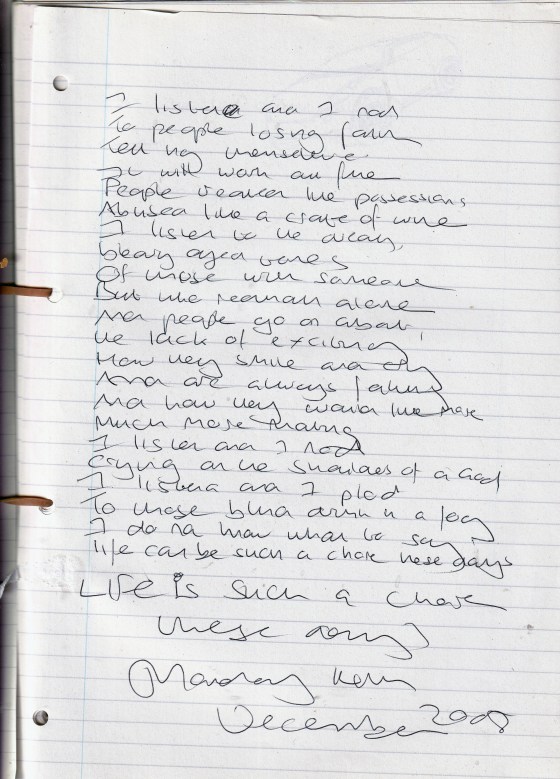 I listen and I nod
To people losing faith
Telling themselves
It will work out fine
People treated like possessions
Abused like a crate of wine
I listen to the dreary,
bleary eyed tones
Of those with someone
But who remain alone
And people go on about
the lack of exciting
How they smile and cry
And are always
And how they would like more
Much more
I listen and I nod
Crying on the shoulders of a God
I listen and I plod
To those blind drunk in a fog
I do not know what to say
life can be such a chore these days
LIFE is such a chore
these days
Kevin
December 2008